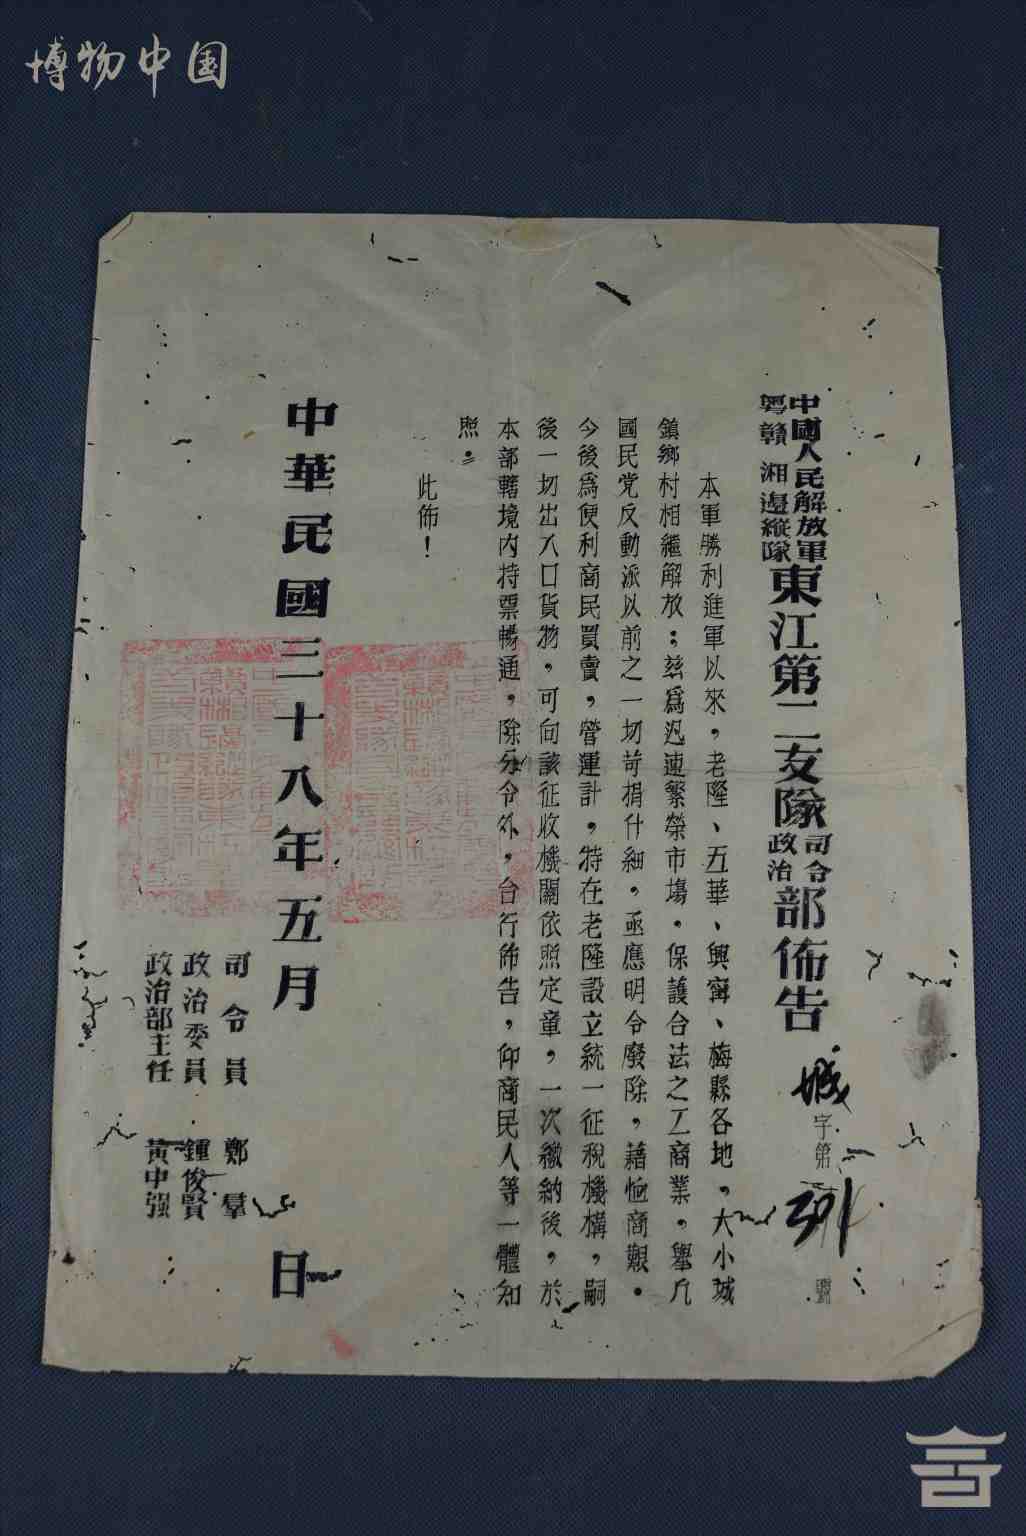 博物中国
中國人民解放軍
粵贛湘邊縱隊
東江第二支隊
司令
政治
部佈告
字第
號
本軍勝利進軍以來，老隆、五華、興甯、梅縣各地，大小城
鎮鄉村相繼解放；茲爲迅速繁榮市場．保護合法之工商業，舉凡
國民党反動派以前之一切苛捐什細，亟應明令廢除，藉恤商艱．
今後爲便利商民買賣，營運計，特在老隆設立統一征稅機構，嗣
後一切出入口貨物，可向該征收機關依照定章，一次繳納後，於
本部轄境內持票暢通，除分令外，合行佈告，仰商民人等一體知
照。
此佈！
中華民國三十八年五月 日
司令員 鄭羣
政治委員 鍾俊賢
政治部主任 黃中强